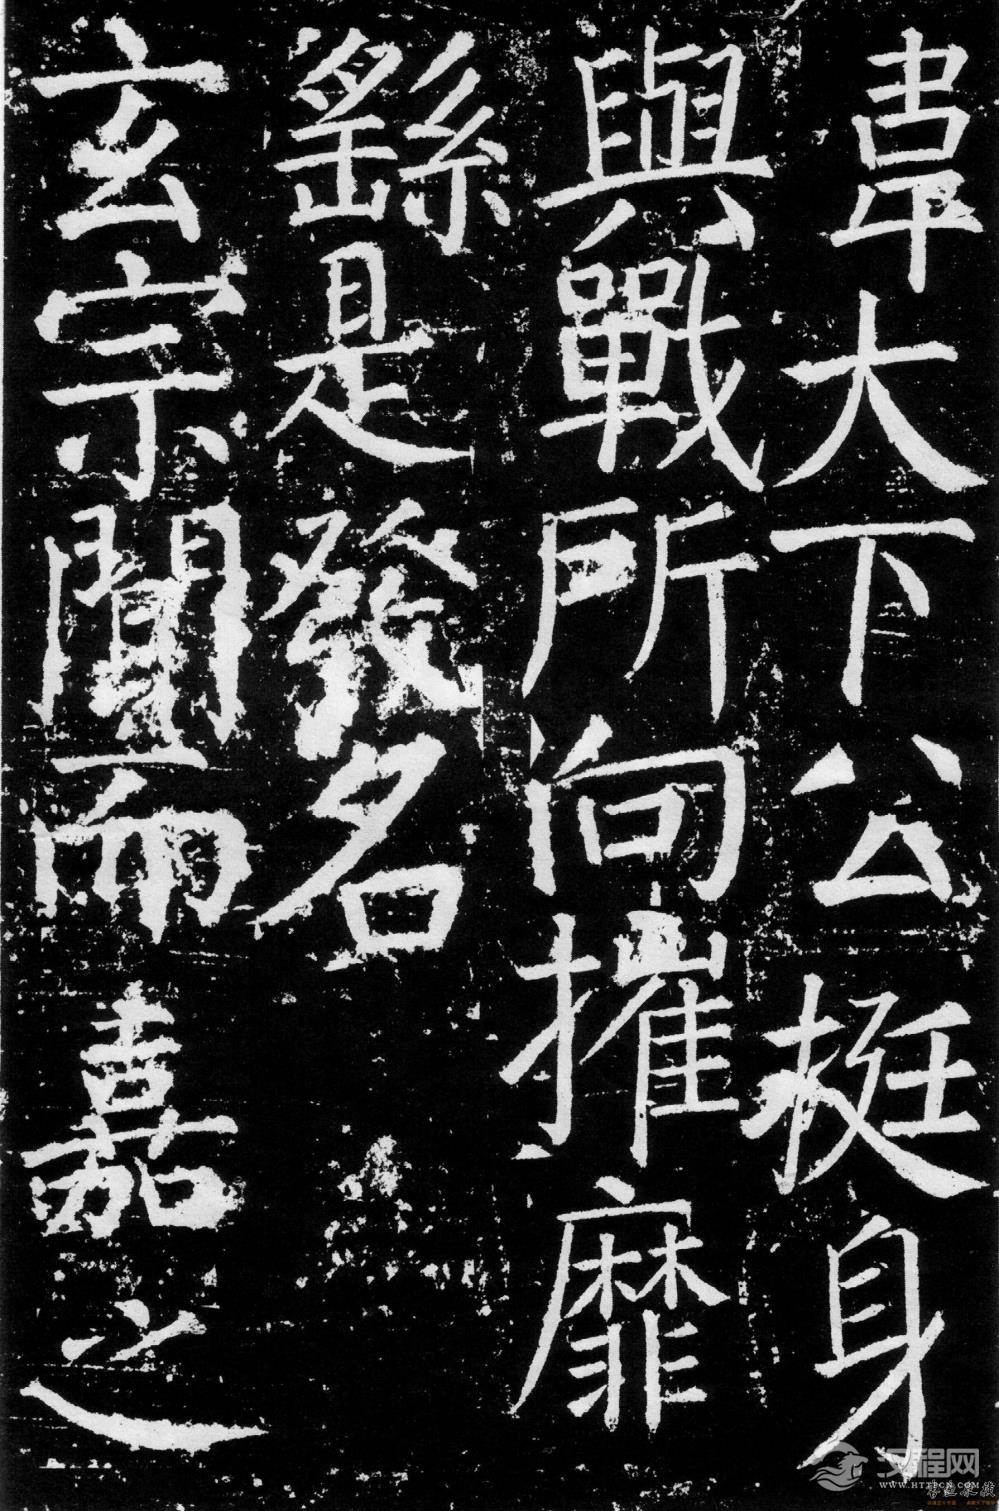 韋大下公挺身
與戰所向摧靡
繇是發名
玄宗聞而嘉之
汉程网
WWW.HTTPCN.COM